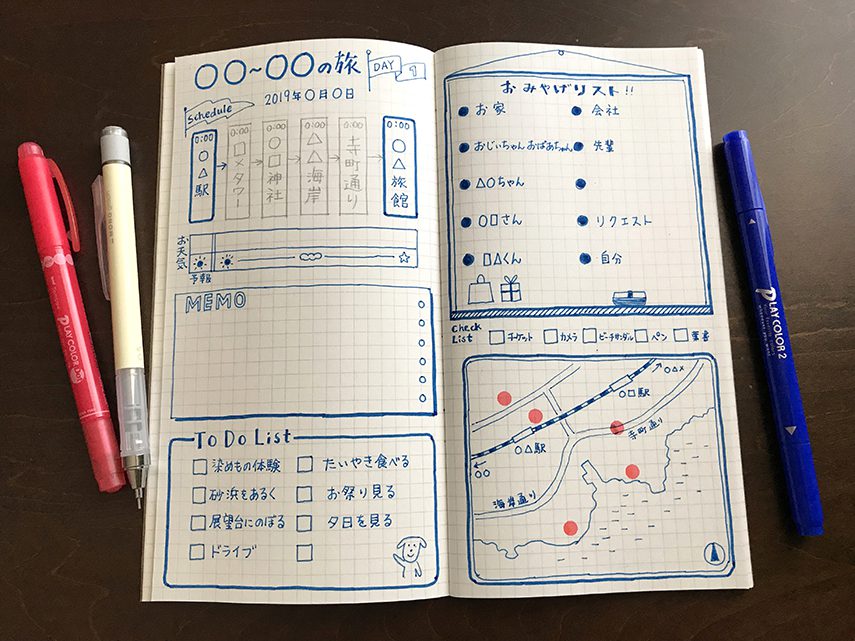 〇〇~〇〇の旅
DAY 1
2019年〇月〇日
Schedule
0:00 〇△駅
0:00 □×タワー
0:00 〇□神社
0:00 △△海岸
0:00 寺町通り
0:00 〇△旅館
お天気
予報
MEMO
To Do List
染めもの体験
たいやき食べる
砂浜をあるく
お祭り見る
展望台にのぼる
夕日を見る
ドライブ
おみやげリスト!!
お家
会社
おじいちゃん おばあちゃん
先輩
△〇ちゃん
〇□さん
リクエスト
□△くん
自分
Check List
チケット
カメラ
ビーチサンダル
ペン
葉書
〇△×
〇□駅
寺町通り
〇△駅
〇〇
海岸通り
PLAY COLOR 2
PLAY COLOR 2